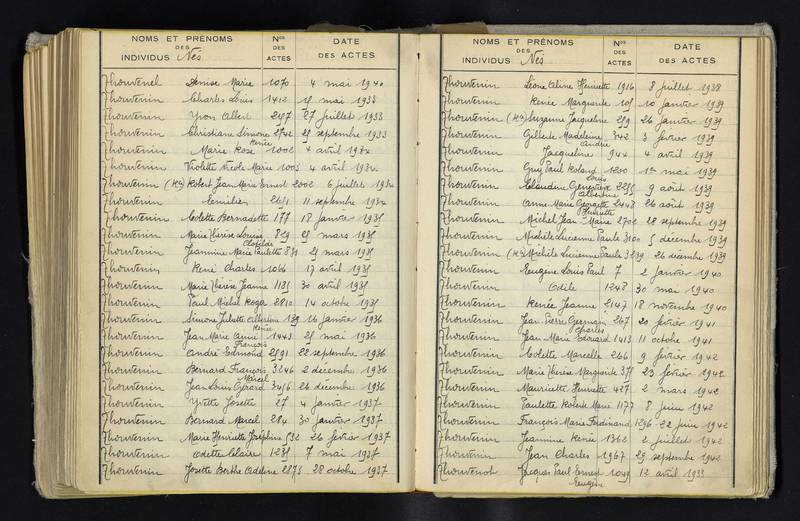 NOMS ET PRÉNOMS
DES
INDIVIDUS Nés
Nos
DES
ACTES
DATE
DES ACTES
Thouvenel Denise Marie 1070 4 mai 1940
Thouvenin Charles Louis 1412 mai 1933
Thouvenin Yvon Albert 27 juillet 1933
Thouvenin Christiane Simone 2742 septembre 1933
Renée
Thouvenin Marie Rose 1002 4 avril 1934
Thouvenin Violette Nicole Marie 1003 4 avril 1934
Thouvenin Robert Jean Marie Ernest 2002 6 juillet 1934
Thouvenin Emilien 11 septembre 1934
Thouvenin Colette Bernadette 177 18 janvier 1935
Thouvenin Marie Thérèse Louise 829 mars 1935
Clotilde
Thouvenin Jeannine Marie Paulette mars 1935
Thouvenin René Charles 1066 17 avril 1935
Thouvenin Marie Thérèse Jeanne 30 avril 1935
Thouvenin Paul Michel Roger 2810 14 octobre 1935
Thouvenin Simone Juliette Albertine 139 16 janvier 1936
Renée
Thouvenin Jean Marie 1443 mai 1936
François
Thouvenin André Edmond 2591 22 septembre 1936
Thouvenin Bernard François 3246 2 décembre 1936
Marcel
Thouvenin Jean Louis Gérard 3456 26 décembre 1936
Thouvenin Yvette Josette 27 4 janvier 1937
Thouvenin Bernard Marcel 284 30 janvier 1937
Thouvenin Marie Henriette Joséphine 532 26 février 1937
Thouvenin Odette Claire 7 mai 1937
Thouvenin Josette Berthe Adeline 2873 28 octobre 1937
NOMS ET PRÉNOMS
DES
INDIVIDUS Nés
Nos
DES
ACTES
DATE
DES ACTES
Thouvenin Léone Aline Henriette 1916 8 juillet 1938
Thouvenin Renée Marguerite 105 10 janvier 1939
Thouvenin Suzanne Jacqueline 259 26 janvier 1939
Thouvenin Gilberte Madeleine 342 3 février 1939
Andrée
Thouvenin Jacqueline 944 4 avril 1939
Thouvenin Guy Paul Roland 1200 1er mai 1939
Louis
Thouvenin Claudine Geneviève 9 août 1939
Albertine
Thouvenin Anne Marie Georgette 2448 26 août 1939
Henriette
Thouvenin Michel Jean Marie 2702 28 septembre 1939
Thouvenin Michèle Lucienne Paule 3100 5 décembre 1939
Thouvenin Michèle Lucienne Paule 3239 26 décembre 1939
Thouvenin Eugène Louis Paul 7 2 janvier 1940
Thouvenin Odile 1248 30 mai 1940
Thouvenin Renée Jeanne 2147 18 novembre 1940
Thouvenin Jean Pierre Germain 267 20 février 1941
Charles
Thouvenin Jean Marie Edouard 1413 11 octobre 1941
Thouvenin Colette Marcelle 266 9 février 1942
Thouvenin Marie Thérèse Marguerite 23 février 1942
Thouvenin Mauricette Henriette 427 2 mars 1942
Thouvenin Paulette Marie 1177 8 juin 1942
Thouvenin François Marie Ferdinand 1296 22 juin 1942
Thouvenin Jeannine Renée 1362 2 juillet 1942
Thouvenin Jean Charles 1967 29 septembre 1942
Thouvenot Jacques Paul Ernest 1049 12 avril 1933
Eugène